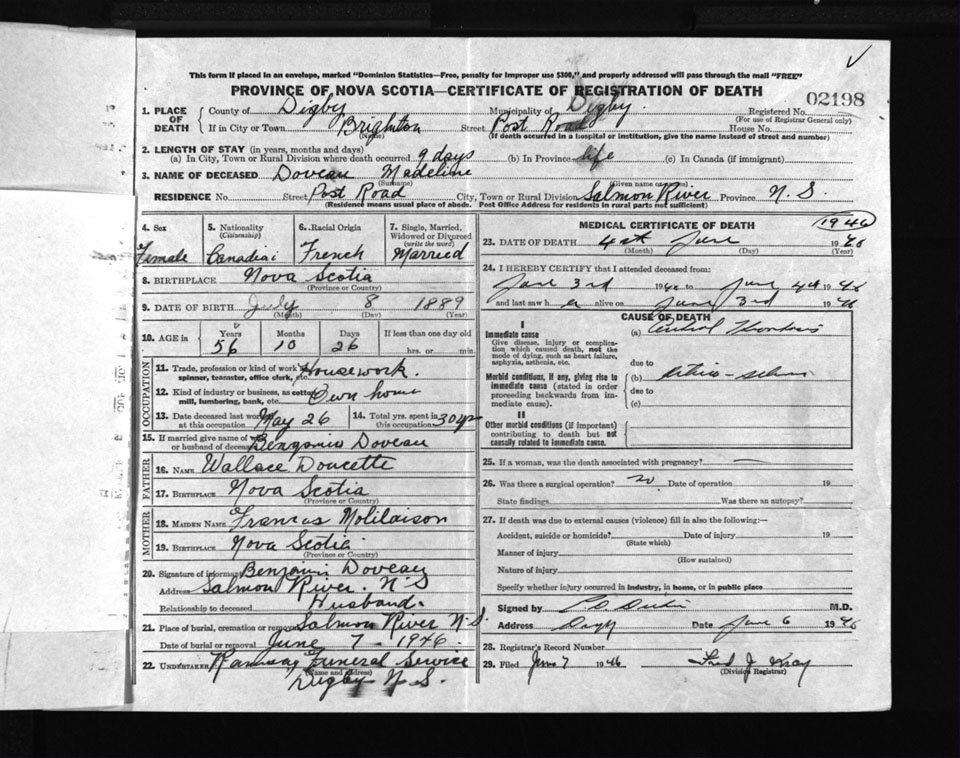 This form if placed in an envelope, marked "Dominion Statistics—Free, penalty for improper use $300," and properly addressed will pass through the mail "FREE"
PROVINCE OF NOVA SCOTIA—CERTIFICATE OF REGISTRATION OF DEATH
02198
1. PLACE OF DEATH
County of Digby Municipality of Digby. Registered No.
(For use of Registrar General only)
If in City or Town Brighton Street Post Road House No.
(Name) (If death occurred in a hospital or institution, give the name instead of street and number)
2. LENGTH OF STAY (in years, months and days)
(a) In City, Town or Rural Division where death occurred 9 days (b) In Province life (c) In Canada (if immigrant)
3. NAME OF DECEASED Doveau Madeline
(Surname) (Given name or names)
RESIDENCE No. Street Post Road City, Town or Rural Division Salmon River Province N. S
(Residence means usual place of abode. Post Office Address for residents in rural parts not sufficient)
4. Sex
Female
5. Nationality
(Citizenship)
Canadian
6. Racial Origin
French
7. Single, Married, Widowed or Divorced
(write the word)
Married
8. BIRTHPLACE Nova Scotia
(Province or Country)
9. DATE OF BIRTH July 8 1889
(Month) (Day) (Year)
10. AGE in
Years Months Days If less than one day old
56 10 26 hrs. or min.
OCCUPATION
11. Trade, profession or kind of work Housework.
spinner, teamster, office clerk, etc.
12. Kind of industry or business, as cotton Own home
mill, lumbering, bank, etc.
13. Date deceased last worked at this occupation May 26
14. Total yrs. spent in this occupation 30 yrs
15. If married give name of wife or husband of deceased Benjamin Doveau
FATHER
16. NAME Wallace Doucette
17. BIRTHPLACE Nova Scotia
(Province or Country)
MOTHER
18. MAIDEN NAME Francas Molilaison
19. BIRTHPLACE Nova Scotia
(Province or Country)
20. Signature of informant Benjamin Doveau
Address Salmon River. N. S
Relationship to deceased Husband.
21. Place of burial, cremation or removal Salmon River N. S.
Date of burial or removal June 7 - 1946
22. UNDERTAKER Ramsay Funeral Service
(Name and address)
Digby N. S.
MEDICAL CERTIFICATE OF DEATH
1946
23. DATE OF DEATH 4th June 1946
(Month) (Day) (Year)
24. I HEREBY CERTIFY that I attended deceased from:
June 3rd 1946 to June 4th 1946
and last saw her alive on June 3rd 1946
CAUSE OF DEATH
I
Immediate cause (a)
Give disease, injury or complication which caused death, not the mode of dying, such as heart failure, asphyxia, asthenia, etc.
due to
Morbid conditions, if any, giving rise to immediate cause (stated in order proceeding backwards from immediate cause).
(b)
due to
(c)
II
Other morbid conditions (if important) contributing to death but not causally related to immediate cause.
25. If a woman, was the death associated with pregnancy?
26. Was there a surgical operation? no. Date of operation 19
State findings Was there an autopsy?
27. If death was due to external causes (violence) fill in also the following:—
Accident, suicide or homicide? Date of injury 19
(State which)
Manner of injury
(How sustained)
Nature of injury
Specify whether injury occurred in industry, in home, or in public place
Signed by M.D.
Address Digby Date June 6 1946
28. Registrar's Record Number
29. Filed June 7 1946 Fred J
(Division Registrar)